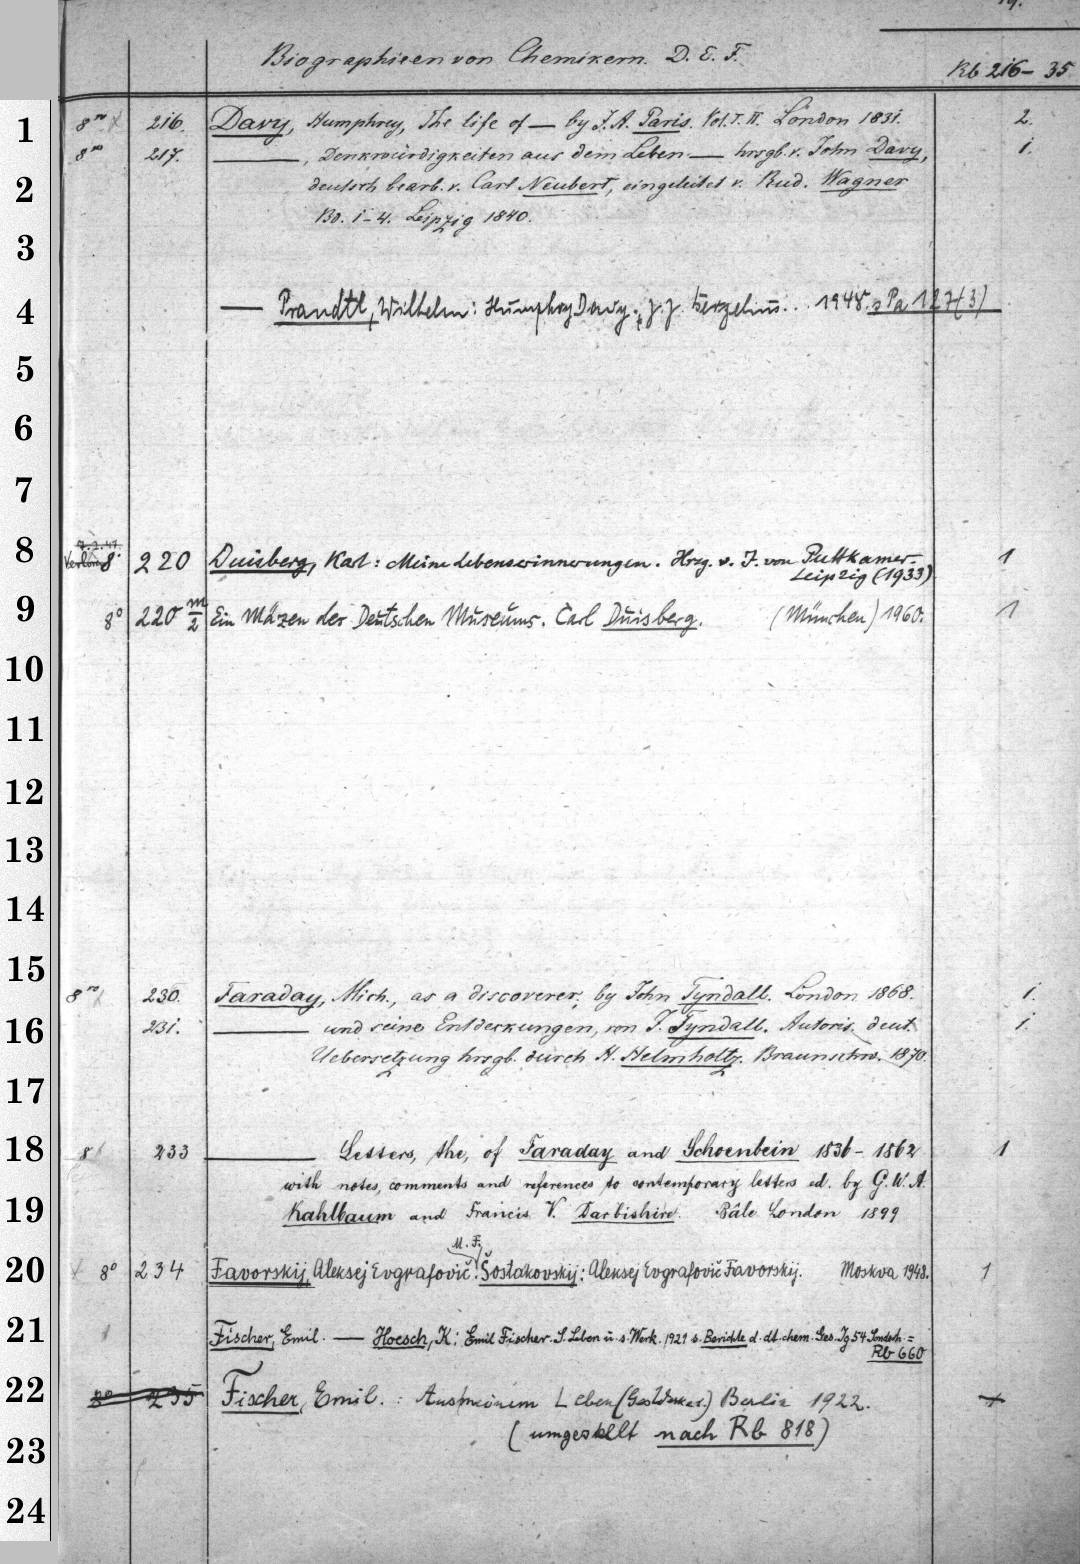 19.
Biographieen von Chemikern. D. E. F.
Rb 216-35
1
8vo 216. Davy, Humphrey, The life of — by J. A. Paris. Vol. I. II. London 1831. 2.
8vo 217. ———, Denkwürdigkeiten aus dem Leben — hrsgb. v. John Davy, 1.
2
deutsch bearb. v. Carl Neubert, eingeleitet v. Rud. Wagner
Bd. 1-4. Leipzig 1840.
3
4
— Prandtl, Wilhelm: Humphry Davy. J. J. Berzelius... 1948. s Pa 127(3)
5
6
7
7.2.47.
8
Verloren 8° 220 Duisberg, Karl: Meine Lebenserinnerungen. Hrsg. v. J. von Puttkamer.- 1
Leipzig (1933)
9
8° 220 m/2 Ein Mäzen der Deutschen Museums. Carl Duisberg. (München) 1960. 1
10
11
12
13
14
15
8vo 230. Faraday, Mich., as a discoverer, by John Tyndall. London 1868. 1.
16
231. ——— und seine Entdeckungen, von J. Tyndall. Autoris. deut. 1.
Uebersetzung hrsgb. durch H. Helmholtz. Braunschw. 1870.
17
18
8 233 ——— Letters, the, of Faraday and Schoenbein 1836-1862 1
with notes, comments and references to contemporary letters ed. by G. W. A.
19
Kahlbaum and Francis V. Darbishire. Bâle London 1899
M. F.
20
8° 234 Favorskij, Aleksej Evgrafovič: Šostakovskij: Aleksej Evgrafovič Favorskij. Moskva 1948. 1
21
Fischer, Emil. — Hoesch, K: Emil Fischer. S. Leben u. s. Werk. 1921 s. Berichte d. dt. chem. Ges. Jg 54 Sondsh. =
Rb 660
22
8° 235 Fischer, Emil. : Aus meinem Leben Berlin 1922. 1
23
(umgestellt nach Rb 818)
24